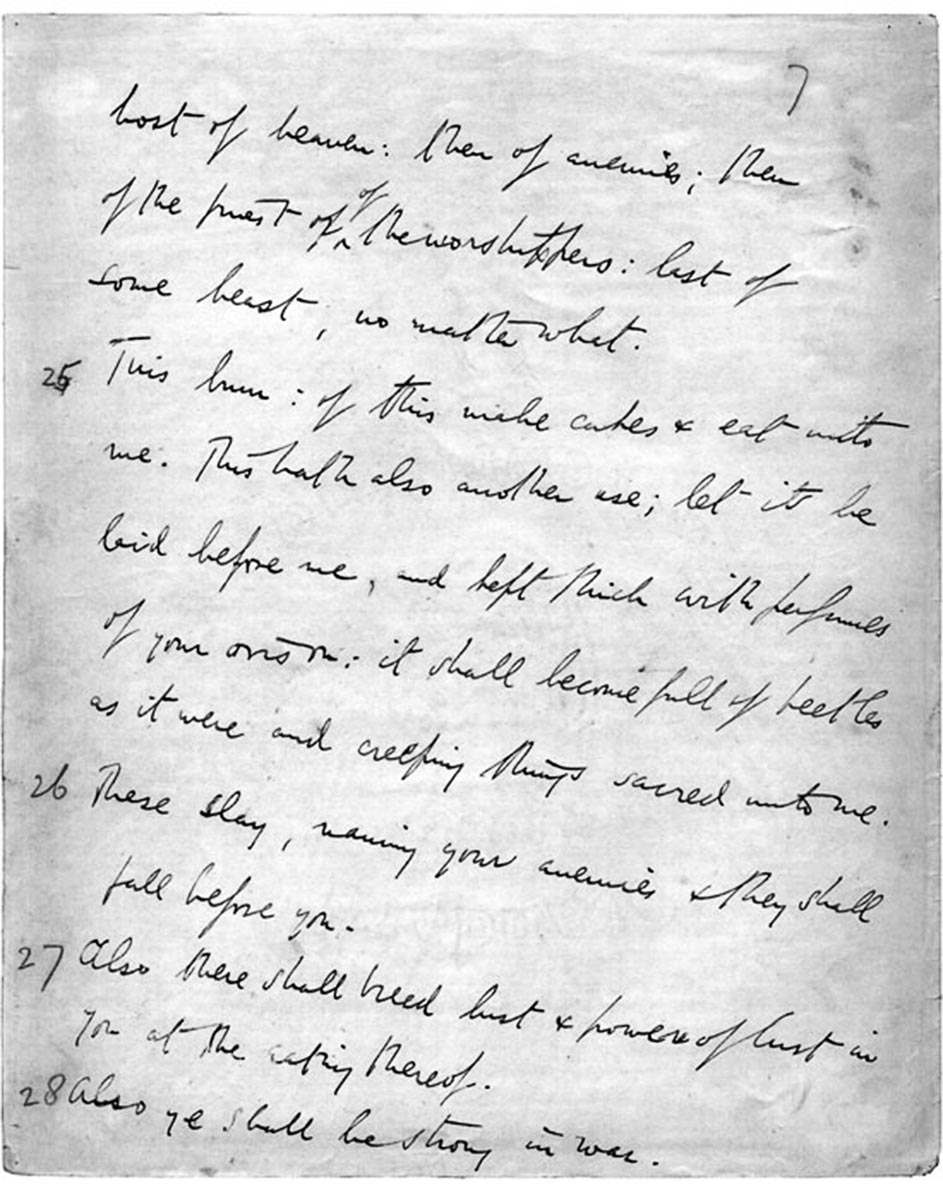 7
host of heaven: then of enemies; then
of the priest or of the worshippers: last of
some beast, no matter what.
25 This burn: of this make cakes & eat unto
me. This hath also another use; let it be
laid before me, and kept thick with perfumes
of your orison: it shall become full of beetles
as it were and creeping things sacred unto me.
26 These slay, naming your enemies & they shall
fall before you.
27 Also there shall breed lust & power of lust in
you at the eating thereof.
28 Also ye shall be strong in war.